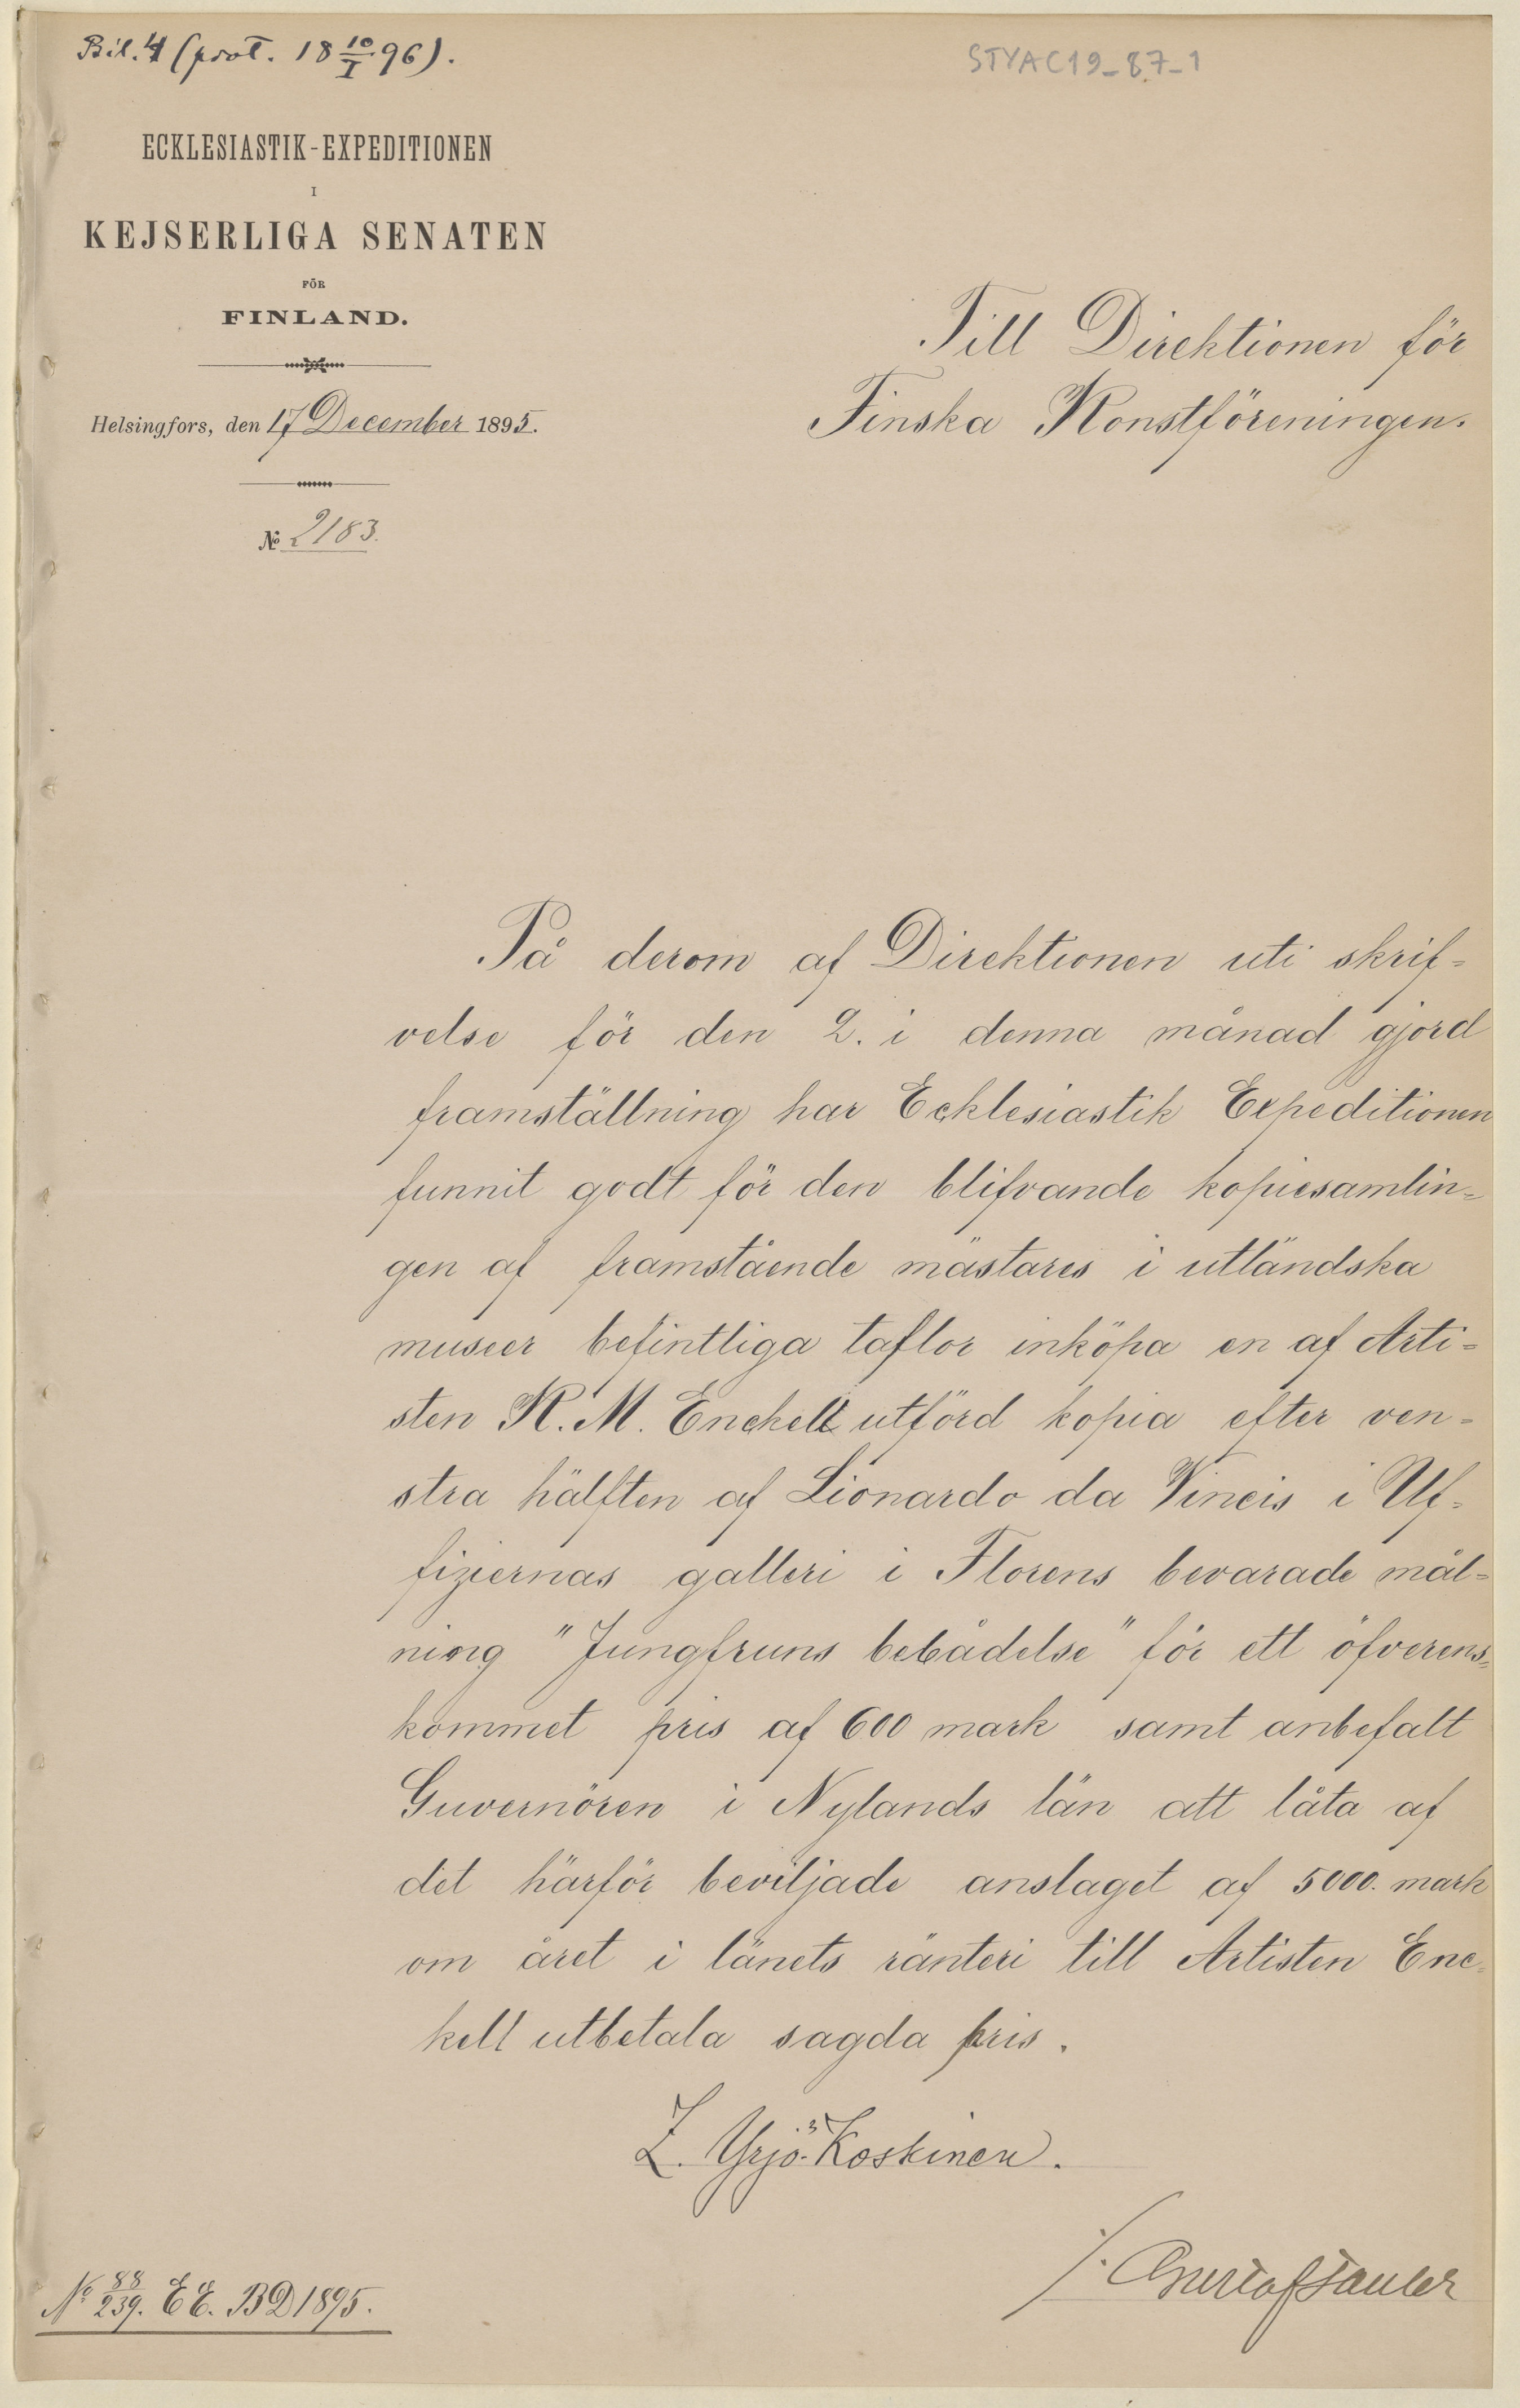 Bil. 4 (prot. 18 10/I 96).
STYAC19_87_1
ECKLESIASTIK-EXPEDITIONEN
I
KEJSERLIGA SENATEN
FÖR
FINLAND.
Helsingfors, den 17 December 1895.
№ 2183.
Till Direktionen för
Finska Konstföreningen.
På derom af Direktionen uti skrif-
velse för den 2. i denna månad gjord
framställning har Ecklesiastik Expeditionen
funnit godt för den blifvande kopiesamlin-
gen af framstående mästares i utländska
museer befintliga taflor inköpa en af Arti-
sten K. M. Enckell utförd kopia efter ven-
stra hälften af Lionardo da Vincis i Uf-
fiziernas galleri i Florens bevarade mål-
ning "Jungfruns bebådelse" för ett öfverens-
kommet pris af 600 mark samt anbefalt
Guvernören i Nylands län att låta af
det härför beviljade anslaget af 5000. mark
om året i länets ränteri till Artisten Enc-
kell utbetala sagda pris.
Z. Yrjö-Koskinen.
Gustaf
No 88/239. EE. BD 1895.